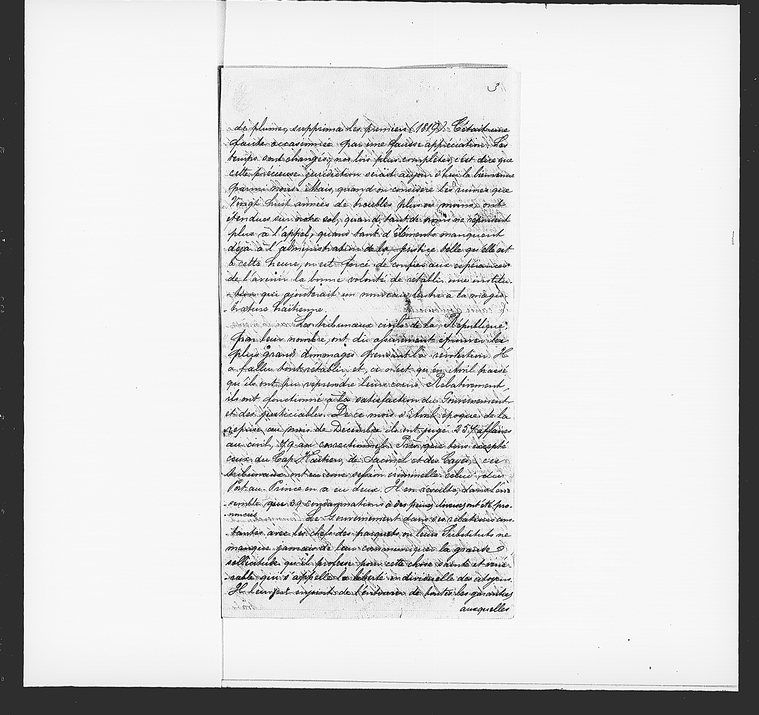 5
de plume, supprima les premiers (1819). C'était une
faute occasionnée par une fausse appréciation. Les
temps sont changés, nos lois plus complètes; c'est dire que
cette précieuse juridiction serait aujourd'hui la bienvenue
parmi nous. Mais, quand on considère les ruines que
Vingt huit années de troubles plus ou moins ont
étendues sur notre sol, quand tant de noms ne répondent
plus à l'appel, quand tant d'éléments manquent
déjà à l'administration de la justice telle qu'elle est
à cette heure, on est forcé de confier aux espérances
de l'avenir la bonne volonté de rétablir une institu-
tion qui ajouterait un nouveau lustre à la magis-
trature haïtienne.
Les tribunaux civils de la République,
par leur nombre, ont dû assurément éprouver les
plus grands dommages pendant la révolution. Il
a fallu tout rétablir et, ce n'est qu'en Avril passé
qu'ils ont pu reprendre leurs cours. Relativement,
ils ont fonctionné à la satisfaction du Gouvernement
et des justiciables. De ce mois d'Avril époque de la
reprise au mois de Décembre ils ont jugé 254 affaires
au civil, 79 au correctionnel. Rien que tous excepté
ceux du Cap-Haïtien, de Jacmel et des Cayes, ces
tribunaux ont eu une session criminelle celui du
Port-au-Prince en a eu deux. Il en résulte, dans l'en-
semble, que 39 condamnations à des peines diverses ont été pro-
noncées.
Le Gouvernement dans ses relations cons-
tantes avec les chefs des parquets ou leurs Substituts ne
manque jamais de leur communiquer la grande
sollicitude qu'il professe pour cette chose sainte et véné-
rable qui s'appelle la liberté individuelle des citoyens.
Il leur est enjoint de l'entourer de toutes les garanties
auxquelles